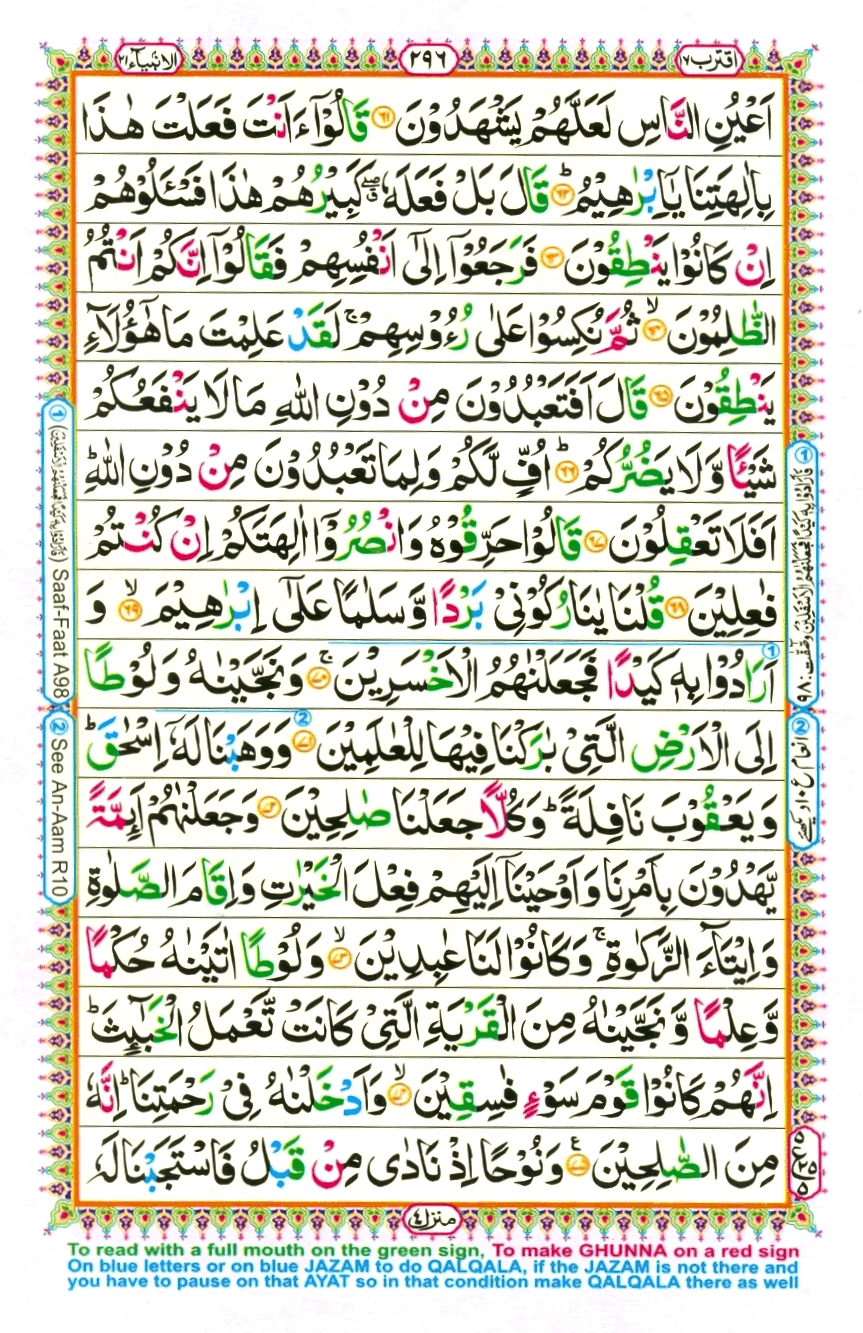 اقترب ١٧
٢٩٦
الانبیآء ٢١
اَعْیُنِ النَّاسِ لَعَلَّهُمْ یَشْهَدُوْنَ ٦١ قَالُوْۤا ءَاَنْتَ فَعَلْتَ هٰذَا
بِاٰلِهَتِنَا یٰۤاِبْرٰهِیْمُ ؕ ٦٢ قَالَ بَلْ فَعَلَهٗ ۖۗ كَبِیْرُهُمْ هٰذَا فَسْـَٔلُوْهُمْ
اِنْ كَانُوْا یَنْطِقُوْنَ ٦٣ فَرَجَعُوْۤا اِلٰۤی اَنْفُسِهِمْ فَقَالُوْۤا اِنَّكُمْ اَنْتُمُ
الظّٰلِمُوْنَ ۙ ٦٤ ثُمَّ نُكِسُوْا عَلٰی رُءُوْسِهِمْ ۚ لَقَدْ عَلِمْتَ مَا هٰۤؤُلَآءِ
یَنْطِقُوْنَ ٦٥ قَالَ اَفَتَعْبُدُوْنَ مِنْ دُوْنِ اللّٰهِ مَا لَا یَنْفَعُكُمْ
شَیْـًٔا وَّلَا یَضُرُّكُمْ ؕ ٦٦ اُفٍّ لَّكُمْ وَلِمَا تَعْبُدُوْنَ مِنْ دُوْنِ اللّٰهِ ؕ
اَفَلَا تَعْقِلُوْنَ ٦٧ قَالُوْا حَرِّقُوْهُ وَانْصُرُوْۤا اٰلِهَتَكُمْ اِنْ كُنْتُمْ
فٰعِلِیْنَ ٦٨ قُلْنَا یٰنَارُ كُوْنِیْ بَرْدًا وَّسَلٰمًا عَلٰۤی اِبْرٰهِیْمَ ۙ ٦٩ وَ
اَرَادُوْا بِهٖ كَیْدًا فَجَعَلْنٰهُمُ الْاَخْسَرِیْنَ ۚ ٧٠ وَنَجَّیْنٰهُ وَلُوْطًا
اِلَی الْاَرْضِ الَّتِیْ بٰرَكْنَا فِیْهَا لِلْعٰلَمِیْنَ ٧١ وَوَهَبْنَا لَهٗۤ اِسْحٰقَ ؕ
وَیَعْقُوْبَ نَافِلَةً ؕ وَكُلًّا جَعَلْنَا صٰلِحِیْنَ ٧٢ وَجَعَلْنٰهُمْ اَىِٕمَّةً
یَّهْدُوْنَ بِاَمْرِنَا وَاَوْحَیْنَاۤ اِلَیْهِمْ فِعْلَ الْخَیْرٰتِ وَاِقَامَ الصَّلٰوةِ
وَاِیْتَآءَ الزَّكٰوةِ ۚ وَكَانُوْا لَنَا عٰبِدِیْنَ ۙ ٧٣ وَلُوْطًا اٰتَیْنٰهُ حُكْمًا
وَّعِلْمًا وَّنَجَّیْنٰهُ مِنَ الْقَرْیَةِ الَّتِیْ كَانَتْ تَّعْمَلُ الْخَبٰٓىِٕثَ ؕ
اِنَّهُمْ كَانُوْا قَوْمَ سَوْءٍ فٰسِقِیْنَ ۙ ٧٤ وَاَدْخَلْنٰهُ فِیْ رَحْمَتِنَا ؕ اِنَّهٗ
مِنَ الصّٰلِحِیْنَ ٧٥ وَنُوْحًا اِذْ نَادٰی مِنْ قَبْلُ فَاسْتَجَبْنَا لَهٗ
منزل ٤
① فَاَرَادُوْا بِهٖ كَیْدًا فَجَعَلْنٰهُمُ الْاَسْفَلِیْنَ وصٰٓفّٰت: ٩٨
② انعام ع ١٠ دیکھئے
① (فَاَرَادُوْا بِهٖ كَیْدًا فَجَعَلْنٰهُمُ الْاَسْفَلِیْنَ) Saaf-Faat A98
② See An-Aam R10
To read with a full mouth on the green sign, To make GHUNNA on a red sign
On blue letters or on blue JAZAM to do QALQALA, if the JAZAM is not there and
you have to pause on that AYAT so in that condition make QALQALA there as well